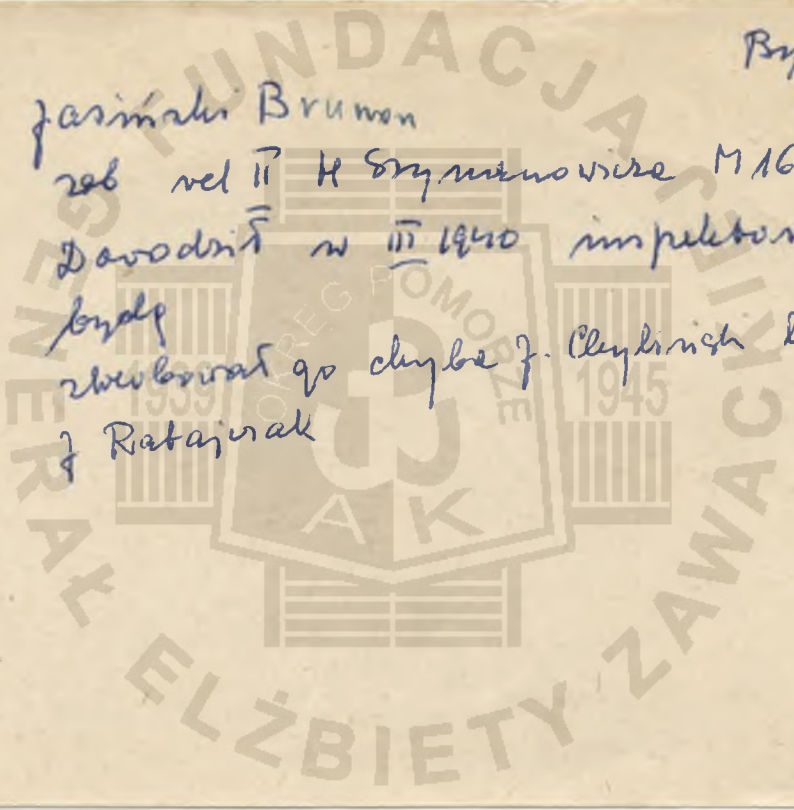 By
Jasiński Brunon
zob rel II H Szymanowicza M 16
Dowodził w III 1940 inspektor
bydg
zwerbował go chyba J. Chyliński
J Ratajczak
FUNDACJA GENERAŁ ELŻBIETY ZAWACKIEJ
OKRĘG POMORZE
1939 1945
AK